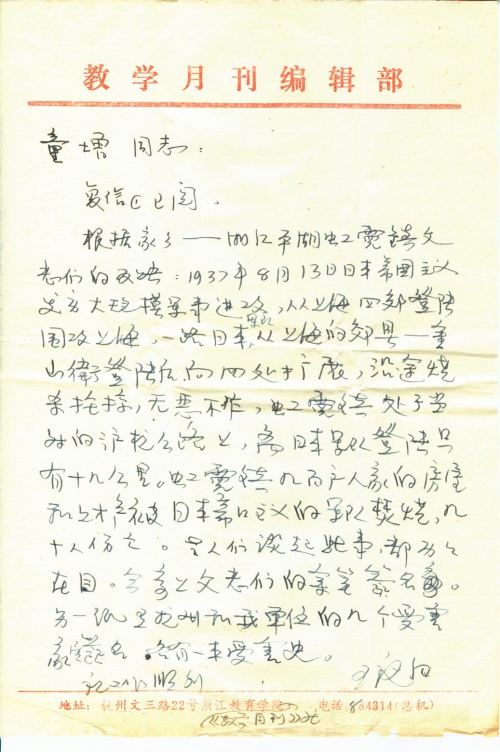 教学月刊编辑部
童增同志：
复信已阅。
根据家乡——浙江平湖虹霓镇父
老们的反映：1937年8月13日日本帝国主义
发动大规模军事进攻，从上海四郊登陆
围攻上海，一路日本军队从上海的郊县—金
山卫登陆后向四处扩展，沿途烧
杀抢掠，无恶不作，虹霓镇处于当
时的沪杭公路上，离日本军队登陆只
有十九公里。虹霓镇几百户人家的房屋
和财产被日本帝国主义的军队焚烧，几
十人伤亡。老人们谈起此事，都历历
在目。今寄上父老们的亲笔签名
另一纸是杭州我单位的几个受害
家签名，各有一本受害史。
祝工作顺利
地址：杭州文三路22号浙江教育学院 电话：864314（总机）
月刊